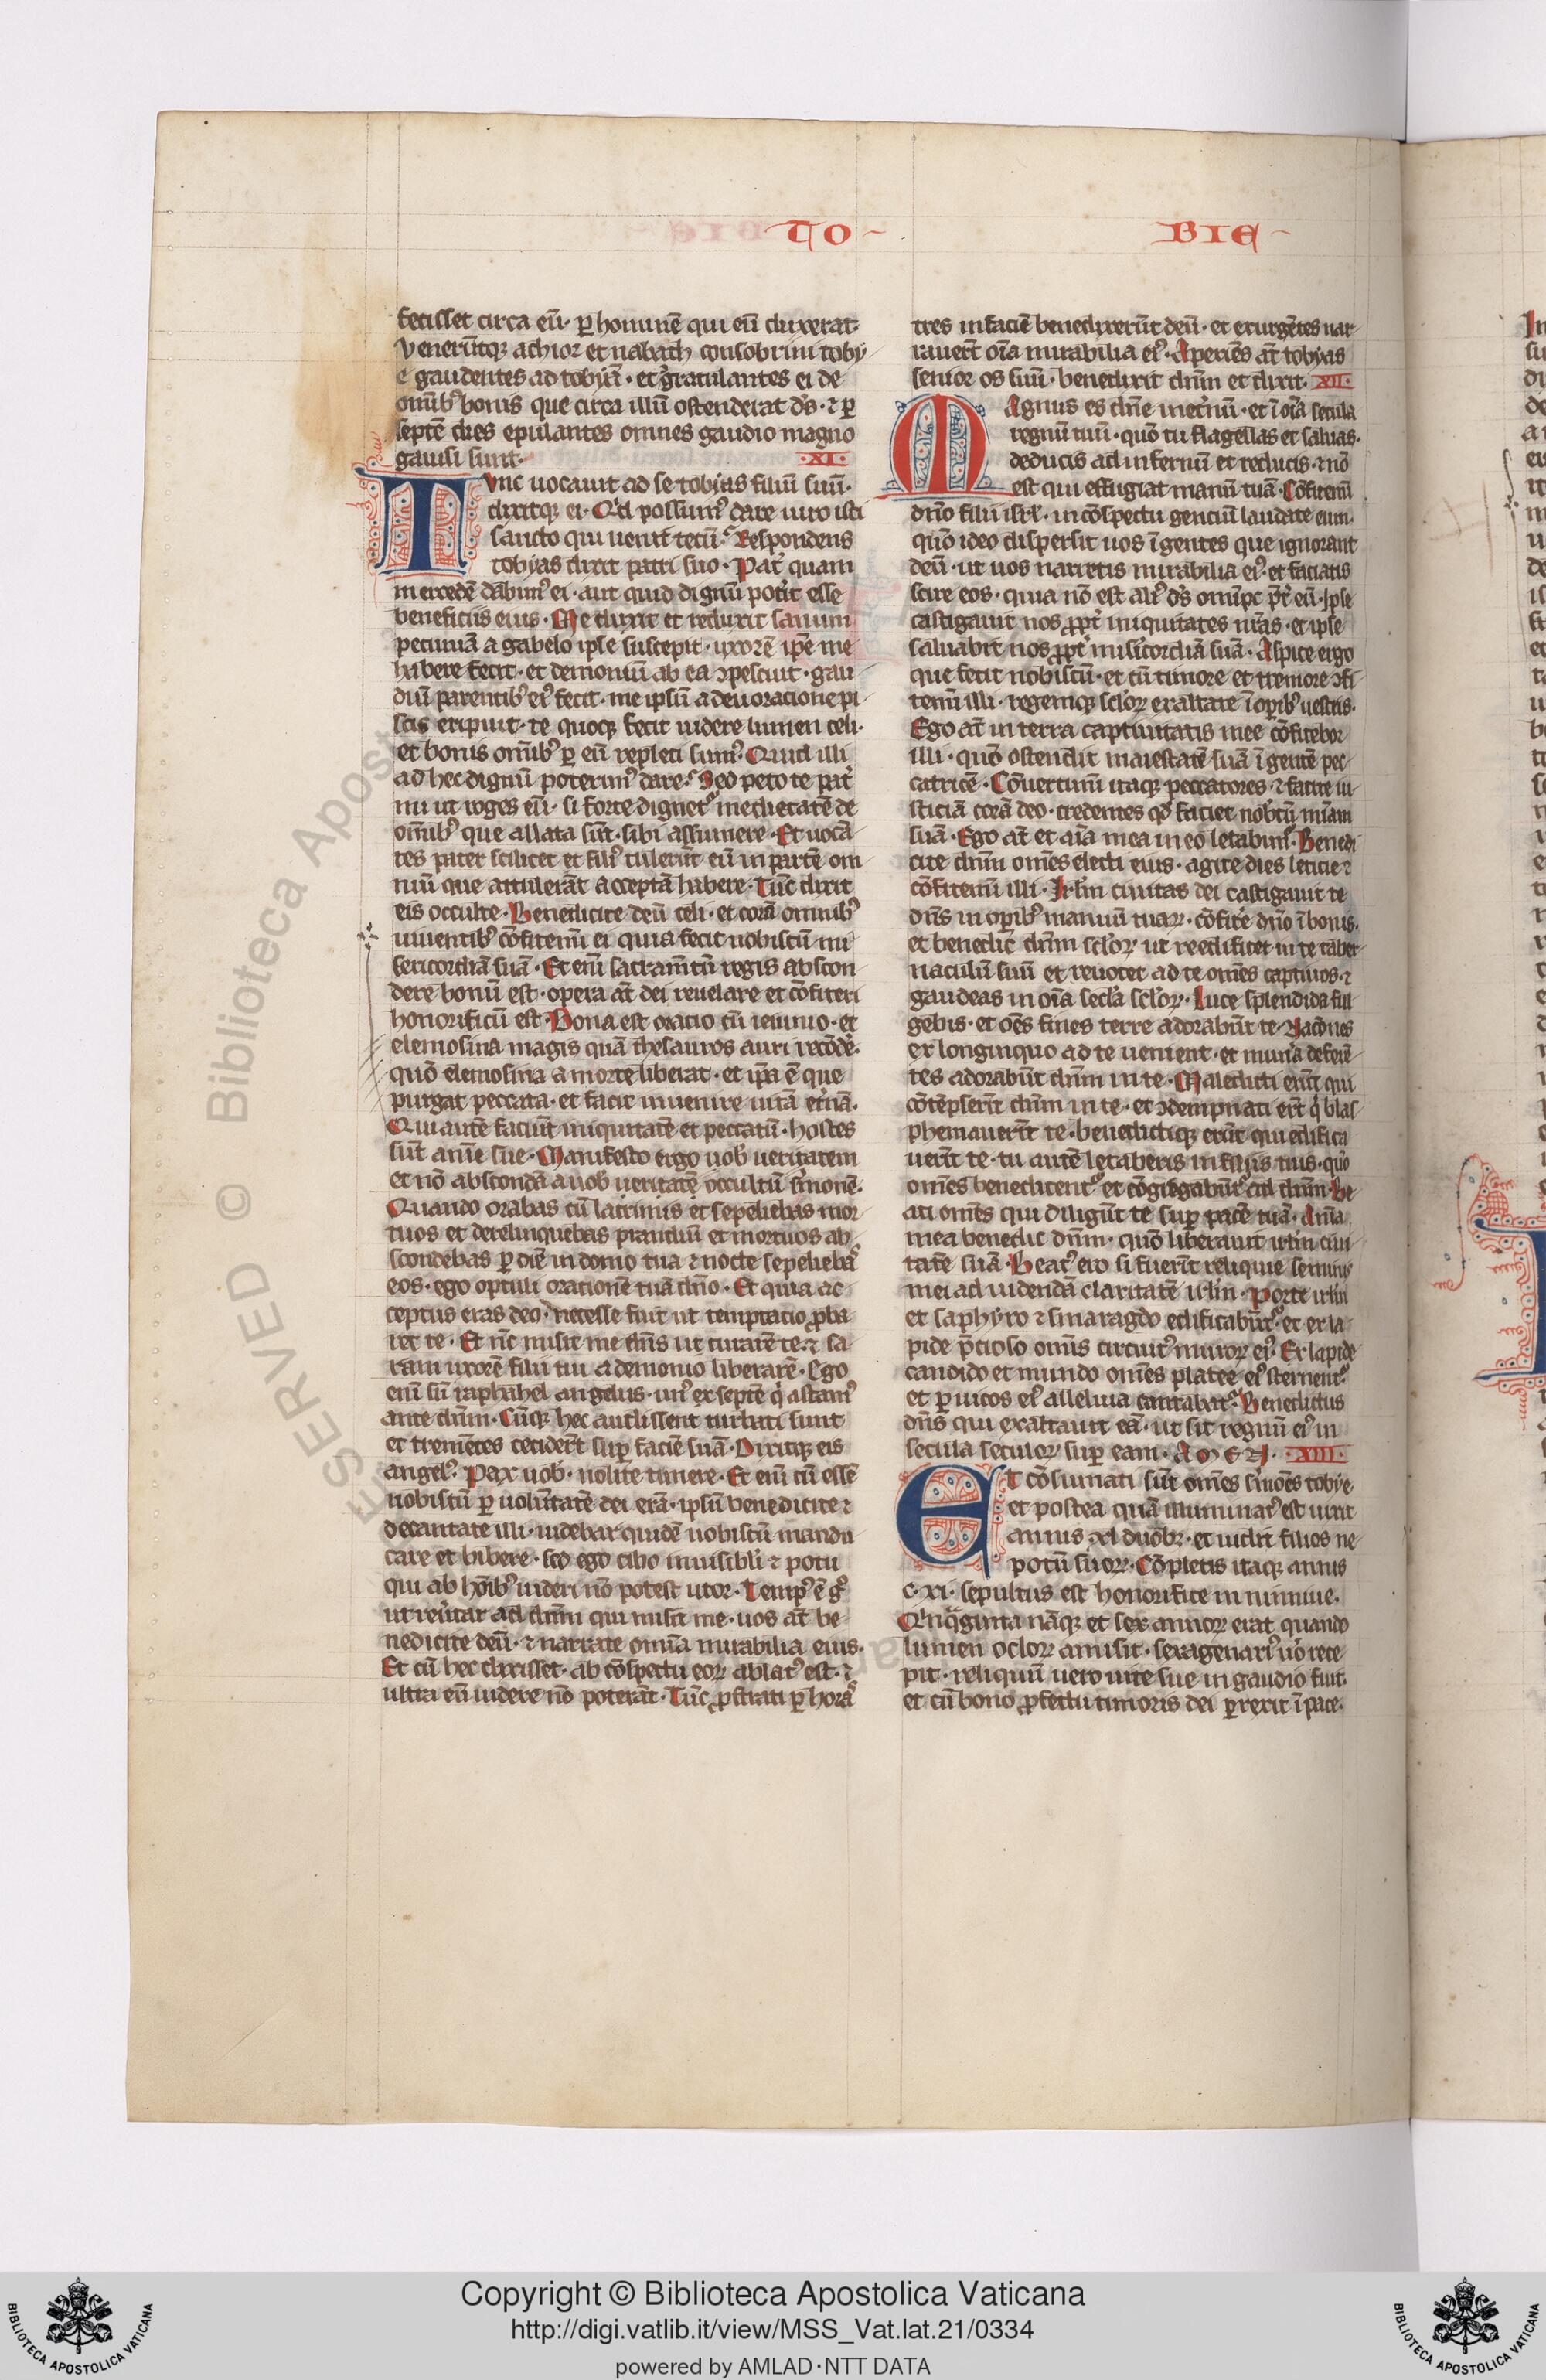 TO
BIE
fecisset circa eū· ꝑ hominē qui eū duxerat·
Venerūtqꝫ achior et nabath consobrini toby
e gaudentes ad tobyā· et gratulantes ei de
omībꝰ bonis que circa illū ostenderat dſ· ⁊ ꝑ
septē dies epulantes omnes gaudio magno
gauisi sunt· ·XI·
Tvnc uocauit ad se tobyas filiū suū·
dixitqꝫ ei· Qͥd possumꝰ dare uiro isti
sancto qui uenit tecū· Respondens
tobyas dixit patri suo· Pat̄ quam
mercedē dabimꝰ ei· aut quid dignū pot̄it esse
beneficiis eius· Me duxit et reduxit sanum
pecuniā a gabelo ipse suscepit· uxorē ip̄e me
habere fecit· et demoniū ab ea ꝯpescuit· gau
diū parentibꝰ eiꝰ fecit· me ipsū a deuoracione pi
scis eripuit· te quoqꝫ fecit uidere lumen celi·
et bonis omībꝰ ꝑ eū repleti sumꝰ· Quid illi
ad hec dignū poterimꝰ dare· Sed peto te pat̄
mi ut roges eū· si forte dignet᷑ medietatē de
omībꝰ que allata sūt· sibi assumere· Et uocā
tes pater scilicet et filiꝰ tulerūt eū in partē om
niū que attulerāt acceptā habere· Tūc dixit
eis occulte· Benedicite deū celi· et corā omnibꝰ
uiuentibꝰ cōfitemī ei quia fecit uobiscū mi
sericordiā suā· Et em̄ sacram̄tū regis abscon
dere bonū est· opera at̄ dei reuelare et cōfiteri
honorificū est· Bona est oracio cū ieiunio· et
elemosina magis quā thesauros auri recōde̅·
quō elemosina a morte liberat· et ip̄a ē que
purgat peccata· et facit inuenire uitā et̄nā·
Qui autē faciūt iniquitatē et peccatū· hostes
sūt anīe sue· Manifesto ergo uob̄ ueritatem
et nō abscondā a uob̄ ueritatē occultū s̄monē·
Quando orabas cū lacrimis et sepeliebas mor
tuos et derelinquebas prandiū et mortuos ab
scondebas ꝑ diē in domo tua ⁊ nocte sepelieba᷒
eos· ego optuli orationē tuā dn̄o· Et quia ac
ceptus eras deo· necesse fuit ut temptacio ꝓba
ret te· Et nc̄ misit me dn̄s ut curarē te· ⁊ sa
ram uxorē filii tui a demonio liberarē· Ego
eni sū raphahel angelus· unꝰ ex septē qͥ astamꝰ
ante dn̄m· Cūqꝫ hec audissent turbati sunt
et tremētes cecider̄t suꝑ faciē suā· Dixitqꝫ eis
angelꝰ· Pax uob̄· nolite timere· Et eni cū essē
uobiscū ꝑ uolūtatē dei erā· ipsū benedicite ⁊
decantate illi· uidebar quidē uobiscū mandu
care et bibere· sed ego cibo inuisibili ⁊ potu
qui ab hoībꝰ uideri nō potest utor· Tempꝰ ē gͦ
ut reu̅tar ad dn̄m qui misit me· uos at̄ be
nedicite deū· ⁊ narrate omīa mirabilia eius·
Et cū hec dixisset· ab cōspectu eoꝝ ablatꝰ est· ⁊
ultra eū uidere nō poterāt· Tūc ꝓstrati ꝑ hora᷒
tres in faciē benedixerūt deū· et exurgētes nar
rauer̄t oīa mirabilia eiꝰ· Aperiēs at̄ tobyas
senior os suū· benedixit dn̄m et dixit· ·XII·
MAgnus es dn̄e inet̄nū· et ī oīa secula
regnū tuū· quō tu flagellas et saluas·
deducis ad infernū et reducis· ⁊ nō
est qui effugiat manū tuā· Cōfitemī
dn̄o filii isr̄l· in cōspectu genciū laudate eum·
quō ideo dispersit uos ī gentes que ignorant
deū· ut uos narretis mirabilia eiꝰ· et faciatis
scire eos· quia nō est aliꝰ dſ omīpc̄ p̄t̄ eū· Ipse
castigauit nos ꝓpt̄ iniquitates nr̄as· et ipse
saluabit nos ꝓpt̄ mis̄icordiā suā· Aspice ergo
que fecit nobiscū· et cū timore et tremore ꝯfi
temī illi· regemqꝫ scloꝝ exaltate ī oꝑibꝰ uestris·
Ego at̄ in terra captiuitatis mee cōfitebor
illi· quō ostendit maiestatē suā ī gentē pec
catricē· Cōuertimī itaqꝫ peccatores· ⁊ facite iu
sticiā corā deo· credentes qd̄ faciet nob̄cū mīam
suā· Ego at̄ et aīa mea in eo letabim᷑· Benedi
cite dn̄m omēs electi eius· agite dies leticie ⁊
cōfitemī illi· Irl̄m ciuitas dei castigauit te
dn̄s in oꝑibꝰ manuū tuaꝝ· cōfite̅ dn̄o ī bonis·
et benedic̄ dn̄m scloꝝ ut reedificet in te taber
naculū suū et reuocet ad te omēs captiuos· ⁊
gaudeas in oīa secl̄a scloꝝ· Luce splendida ful
gebis· et oēs fines terre adorabūt te· Nacōnes
ex longinquo ad te uenient· et mun̄a deferē
tes adorabūt dn̄m in te· Maledicti erūt qui
cōtēpserīt dn̄m in te· et ꝯdempnati er̄t qͥ blas
phemauerīt te· benedictiqꝫ erūt qui edifica
uerīt te· tu autē letaberis in filiis tuis· quō
omēs benedicent᷑ et cōgregabūt᷑ ad dn̄m· Be
ati omēs qui diligūt te· suꝑ pace tuā· Anīa
mea benedic dn̄m· quō liberauit irl̄m ciui
tatē suā· Beatꝰ ero si fuerīt reliquie seminis
mei ad uidendā claritatē irl̄m· Porte irl̄m
et saphyro ⁊ smaragdo edificabūt᷑· et ex la
pide p̄cioso omīs circuitꝰ muroꝝ eiꝰ· Ex lapide
candido et mundo omēs platee eiꝰ sternent᷑·
et ꝑ uicos eiꝰ alleluia cantabit᷑· Benedictus
dn̄s qui exaltauit eā· ut sit regnū eiꝰ in
secula seculoꝝ suꝑ eam· AMEN· ·XIII·
Et cōsumati sūt omēs s̄mōes tobye·
et postea quā illuminatꝰ est uixit
annis xl duobꝫ· et uidit filios ne
potū suoꝝ· Cōpletis itaqꝫ annis
c·xi· sepultus est honorifice in niniue·
Qͥnqᷓginta nāqꝫ et sex annoꝝ erat quando
lumen ocloꝝ amisit· sexagenariꝰ uo̅ rece
pit· reliquū uero uite sue in gaudio fuit·
et cū bono ꝓfectu timoris dei ꝑrexit ī pace·
Copyright © Biblioteca Apostolica Vaticana
http://digi.vatlib.it/view/MSS_Vat.lat.21/0334
powered by AMLAD·NTT DATA
BIBLIOTECA APOSTOLICA VATICANA
BIBLIOTECA APOSTOLICA VATICANA